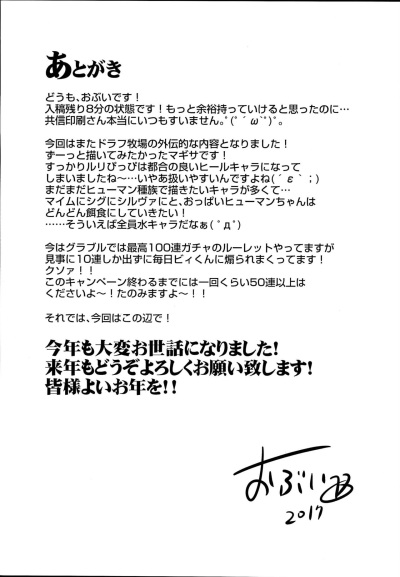 あとがき
どうも、おぶいです！
入稿残り8分の状態です！もっと余裕持っていけると思ったのに…
共信印刷さん本当にいつもすいません。°(°´ω`°)°。
今回はまたドラフ牧場の外伝的な内容となりました！
ずーっと描いてみたかったマギサです！
すっかりルリぴっぴは都合の良いヒールキャラになって
しまいましたね～…いやあ扱いやすいんですよね(´ε｀；)
まだまだヒューマン種族で描きたいキャラが多くて…
マイムにシグにシルヴァにと、おっぱいヒューマンちゃんは
どんどん餌食にしていきたい！
……そういえば全員水キャラだなぁ(ﾟдﾟ)
今はグラブルでは最高100連ガチャのルーレットやってますが
見事に10連しか出ずに毎日ビィくんに煽られまくってます！
クソァ！！
このキャンペーン終わるまでには一回くらい50連以上は
くださいよ～！たのみますよ～！！
それでは、今回はこの辺で！
今年も大変お世話になりました！
来年もどうぞよろしくお願い致します！
皆様よいお年を！！
おぶい
2017